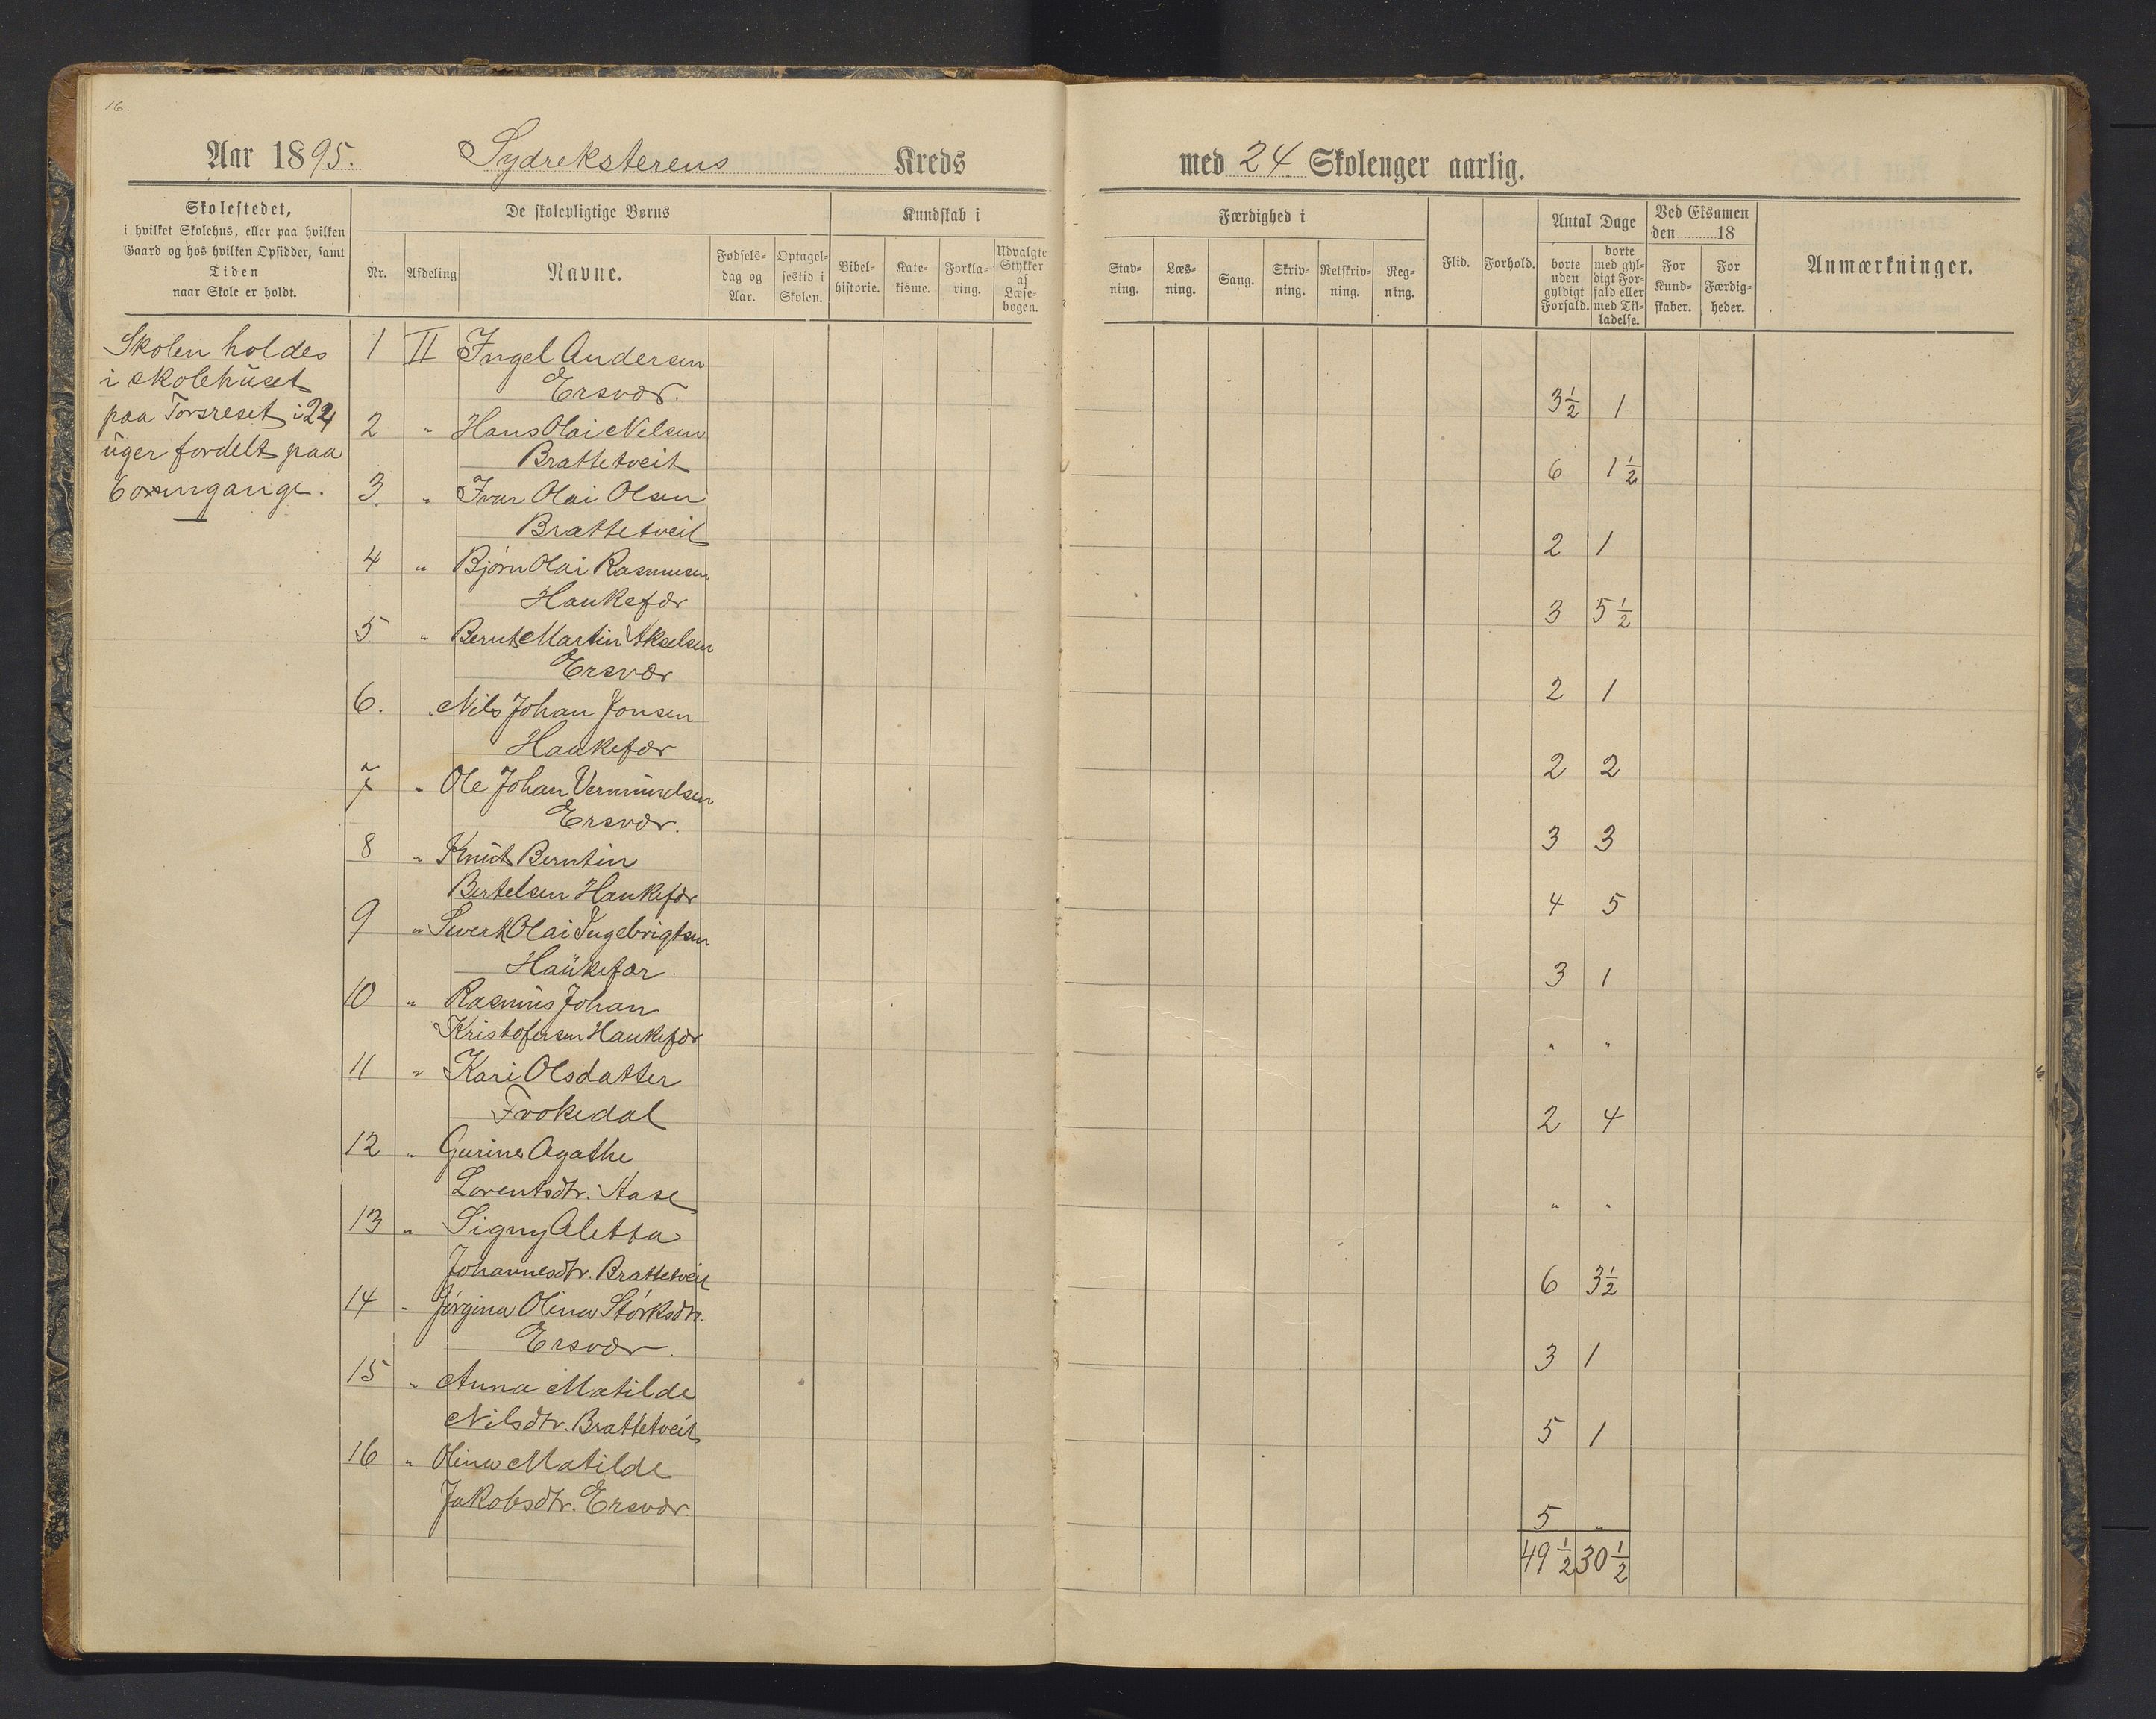 16.
Aar 1895. Sydreksterens Kreds
med 24 Skoleuger aarlig.
Skolestedet,
i hvilket Skolehus, eller paa hvilken
Gaard og hos hvilken Opsidder, samt
Tiden
naar Skole er holdt.
De skolepligtige Børns
Nr.
Afdeling
Navne.
Fødsels-
dag og
Aar.
Optagel-
sestid i
Skolen.
Kundskab i
Bibel-
historie.
Kate-
kisme.
Forkla-
ring.
Udvalgte
Stykker
af
Læse-
bogen.
Færdighed i
Stav-
ning.
Læs-
ning.
Sang.
Skriv-
ning.
Retskriv-
ning.
Reg-
ning.
Flid.
Forhold.
Antal Dage
borte
uden
gyldigt
Forfald.
borte
med gyl-
digt For-
fald eller
med Til-
ladelse.
Ved Eksamen
den 18
For
Kund-
skaber.
For
Færdig-
heder.
Anmærkninger.
Skolen holdes
i skolehuset
paa Torsreset i 24
uger fordelt paa
6 omgange.
1 II Ingel Andersen
Ersvær. 3½ 1
2 " Hans Olai Nelsen
Brattetveit 6 1½
3 " Ivar Olai Olsen
Brattetveit 2 1
4 " Bjørn Olai Rasmusen
Haukefær 3 5½
5 " Bernt Martin Akselsen
Ersvær 2 1
6. " Nils Johan Jonsen
Haukefær 2 2
7 " Ole Johan Vermundsen
Ersvær. 3 3
8 " Knut Berntin
Bertelsen Haukefær 4 5
9 " Sivert Olai Ingebrigtsen
Haukefær. 3 1
10 " Rasmus Johan
Kristofersen Haukefær " "
11 " Kari Olsdatter
Trokedal 2 4
12 " Gurine Agathe
Lorentsdtr. Aase " "
13 " Signy Aletta
Johannesdtr. Brattetveit 6 3½
14 " Jørgina Olina Størksdtr.
Ersvær. 3 1
15 " Anna Matilde
Nilsdtr. Brattetveit 5 1
16 " Olina Matilde
Jakobsdtr. Ersvær. 5 "
49½ 30½